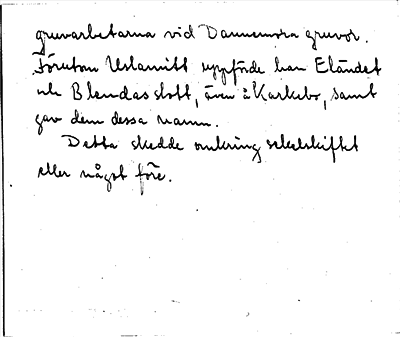 gruvarbetarna vid Dannemora gruvor.
Förutom Uslamitt uppförde han Eländet
och Blendas slott, även å Karlebo, samt
gav dem dessa namn.
Detta skedde omkring sekelskiftet
eller något före.